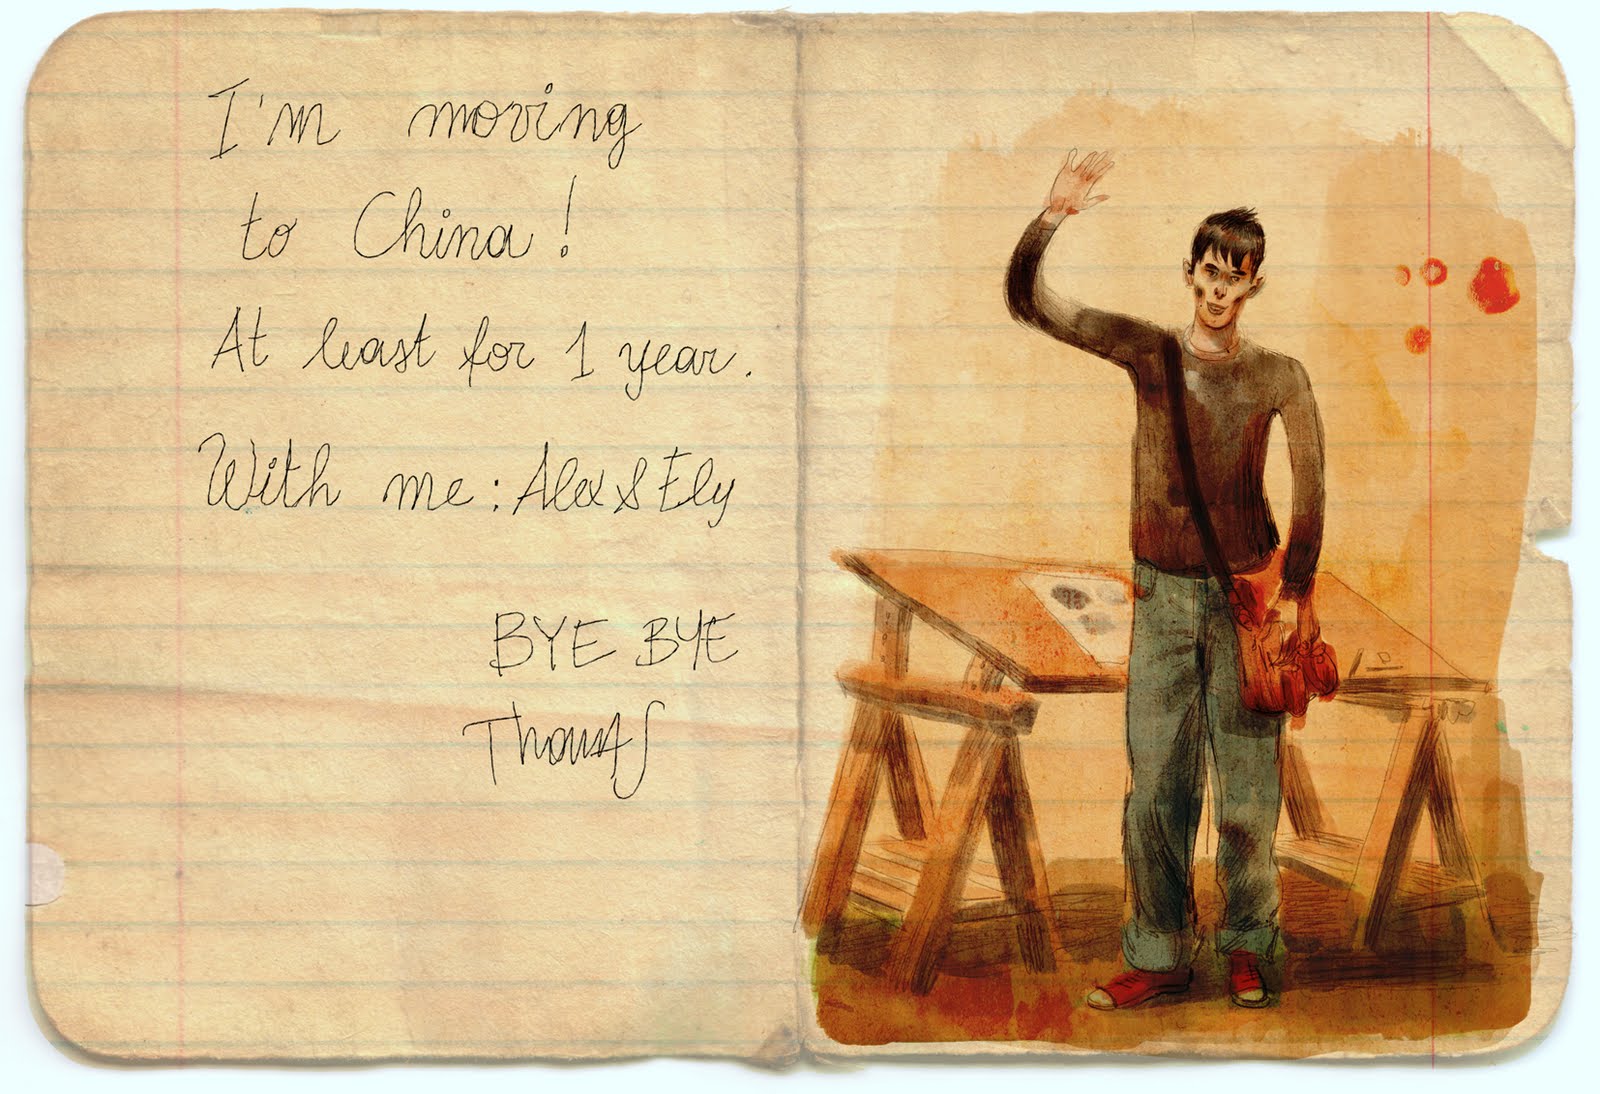 I'm moving
to China!
At least for 1 year.
With me: Alex & Ely
BYE BYE
Thomas